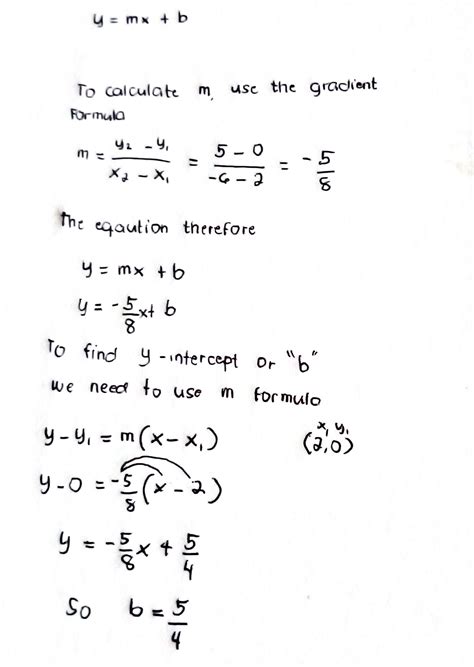 y = mx + b
To calculate m, use the gradient
Formula
m = y₂ - y₁ / x₂ - x₁ = 5 - 0 / -6 - 2 = - 5/8
The eqaution therefore
y = mx + b
y = - 5/8 x + b
To find y-intercept or "b"
we need to use m formulo
y - y₁ = m(x - x₁) x₁ y₁ (2, 0)
y - 0 = - 5/8 (x - 2)
y = - 5/8 x + 5/4
So b = 5/4